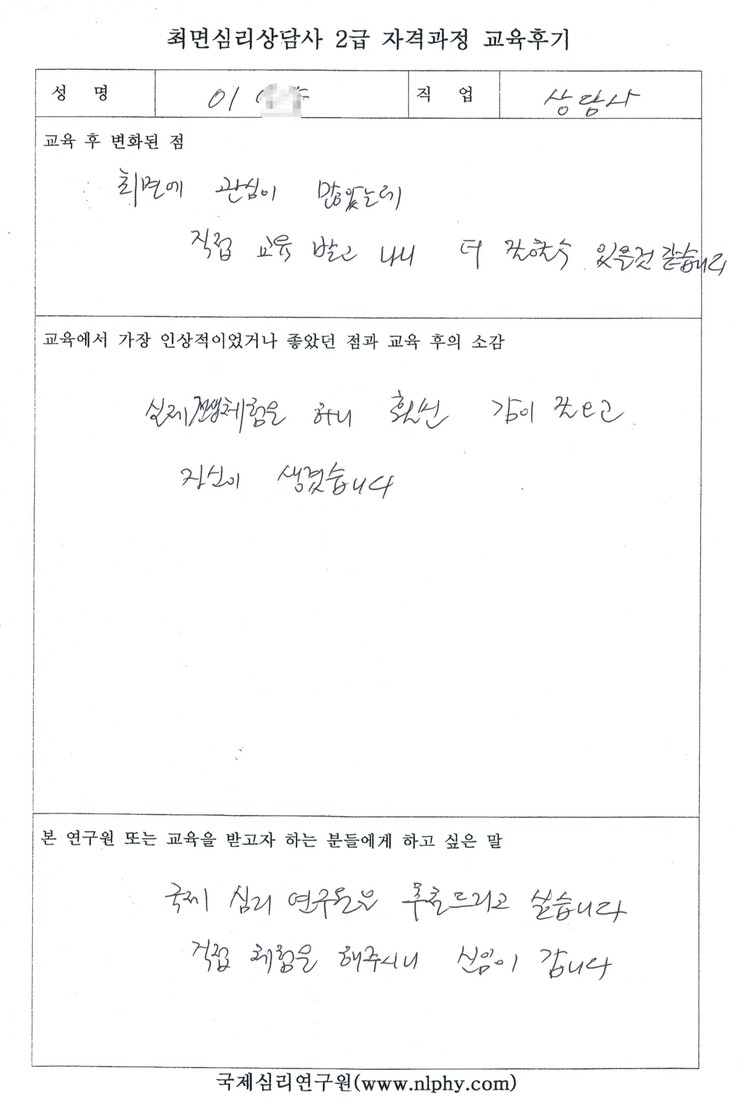 최면심리상담사 2급 자격과정 교육후기
성 명 이 직 업 상담사
교육 후 변화된 점
최면에 관심이 많았는데
직접 교육 받고 나니 더 잘할수 있을것 같습니다
교육에서 가장 인상적이었거나 좋았던 점과 교육 후의 소감
실제 전생체험을 하니 훨씬 감이 잡히고
자신이 생겼습니다
본 연구원 또는 교육을 받고자 하는 분들에게 하고 싶은 말
국제 심리 연구원을 추천드리고 싶습니다
직접 체험을 해주시니 신임이 갑니다
국제심리연구원(www.nlphy.com)